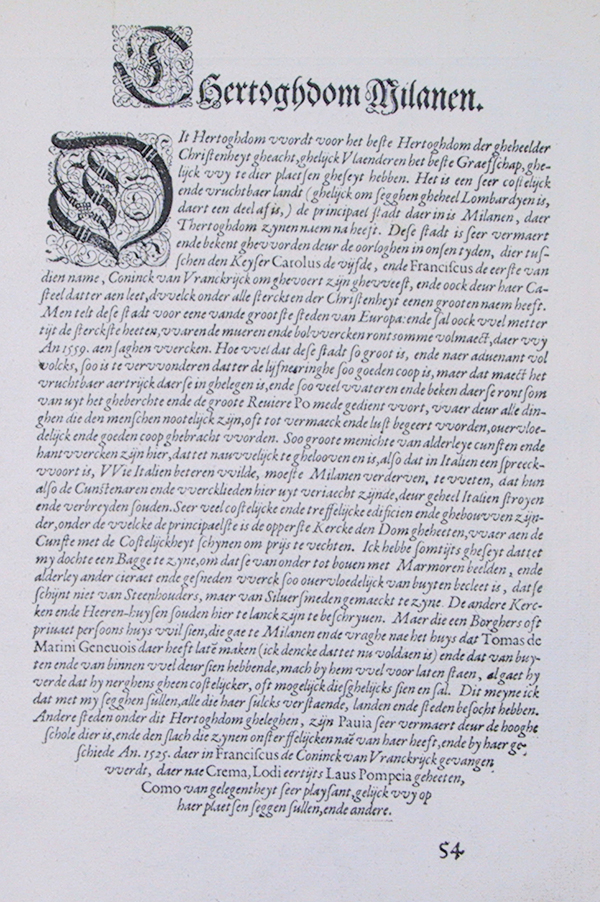 THertoghdom Milanen.
DIt Hertoghdom vvordt voor het beſte Hertoghdom der gheheelder
Chriſtenheyt gheacht, ghelijck Vlaenderen het beſte Graefſchap, ghe-
lijck vvy te dier plaetſen gheſeyt hebben. Het is een ſeer coſtelijck
ende vruchtbaer landt (ghelijck om ſegghen gheheel Lombardyen is,
daert een deel af is,) de principael ſtadt daer in is Milanen, daer
Thertoghdom zynen naem na heeft. Deſe ſtadt is ſeer vermaert
ende bekent ghevvorden deur de oorloghen in onſen tyden, dier tuſ-
ſchen den Keyſer Carolus de vijfde, ende Franciſcus de eerſte van
dien name, Coninck van Vranckrijck om ghevoert zijn ghevveeſt, ende oock deur haer Ca-
ſteel datter aen leet, dvvelck onder alle ſterckten der Chriſtenheyt eenen grooten naem heeft.
Men telt deſe ſtadt voor eene vande grootſte ſteden van Europa: ende ſal oock vvel metter
tijt de ſterckſte heeten, vvaren de mueren ende bolvvercken rontſomme volmaect, daer vvy
An 1559. aen ſaghen vvercken. Hoe vvel dat deſe ſtadt ſo groot is, ende naer aduenant vol
volcks, ſoo is te vervvonderen datter de lijfneringhe ſoo goeden coop is, maer dat maect het
vruchtbaer aertrijck daerſe in ghelegen is, ende ſoo veel vvateren ende beken daerſe rontſom
van uyt het gheberchte ende de groote Reuiere Po mede gedient vvort, vvaer deur alle din-
ghen die den menſchen nootelijck zijn, oft tot vermaeck ende luſt begeert vvorden, ouervloe-
delijck ende goeden coop ghebracht vvorden. Soo groote menichte van alderleye cunſten ende
hantvvercken zijn hier, dattet nauvvelijck te ghelooven en is, alſo dat in Italien een ſpreeck-
vvoort is, VVie Italien beteren vvilde, moeſte Milanen verderven, te vveten, dat hun
alſo de Cunſtenaren ende vvercklieden hier uyt veriaecht zijnde, deur geheel Italien ſtroyen
ende verbreyden ſouden. Seer veel coſtelijcke ende treffelijcke edificien ende ghebouvven zijn-
der, onder de vvelcke de principaelſte is de opperſte Kercke den Dom gheheeten, vvaer aen de
Cunſte met de Coſtelijckheyt ſchynen om prijs te vechten. Ick hebbe ſomtijts gheſeyt dattet
my dochte een Bagge te zyne, om datſe van onder tot bouen met Marmoren beelden, ende
alderley ander cieraet ende geſneden vverck ſoo ouervloedelijck van buyten becleet is, datſe
ſchijnt niet van Steenhouders, maer van Siluerſmeden gemaeckt te zyne. De andere Kerc-
ken ende Heeren-huyſen ſouden hier te lanck zijn te beſchryuen. Maer die een Borghers oft
priuaet perſoons huys vvil ſien, die gae te Milanen ende vraghe nae het huys dat Tomas de
Marini Geneuois daer heeft latē maken (ick dencke dattet nu voldaen is) ende dat van buy-
ten ende van binnen vvel deurſien hebbende, mach by hem vvel voor laten ſtaen, al gaet hy
verde dat hy nerghens gheen coſtelijcker, oft mogelijck dieſghelijcks ſien en ſal. Dit meyne ick
dat met my ſegghen ſullen, alle die haer ſulcks verſtaende, landen ende ſteden beſocht hebben.
Andere ſteden onder dit Hertoghdom gheleghen, zijn Pauia ſeer vermaert deur de hooghe
ſchole dier is, ende den ſlach die zynen onſterffelijcken naē van haer heeft, ende by haer ge-
ſchiede An. 1525. daer in Franciſcus de Coninck van Vranckrijck gevangen
vverdt, daer nae Crema, Lodi eertijts Laus Pompeia geheeten,
Como van gelegentheyt ſeer playſant, gelijck vvy op
haer plaetſen ſeggen ſullen, ende andere.
54